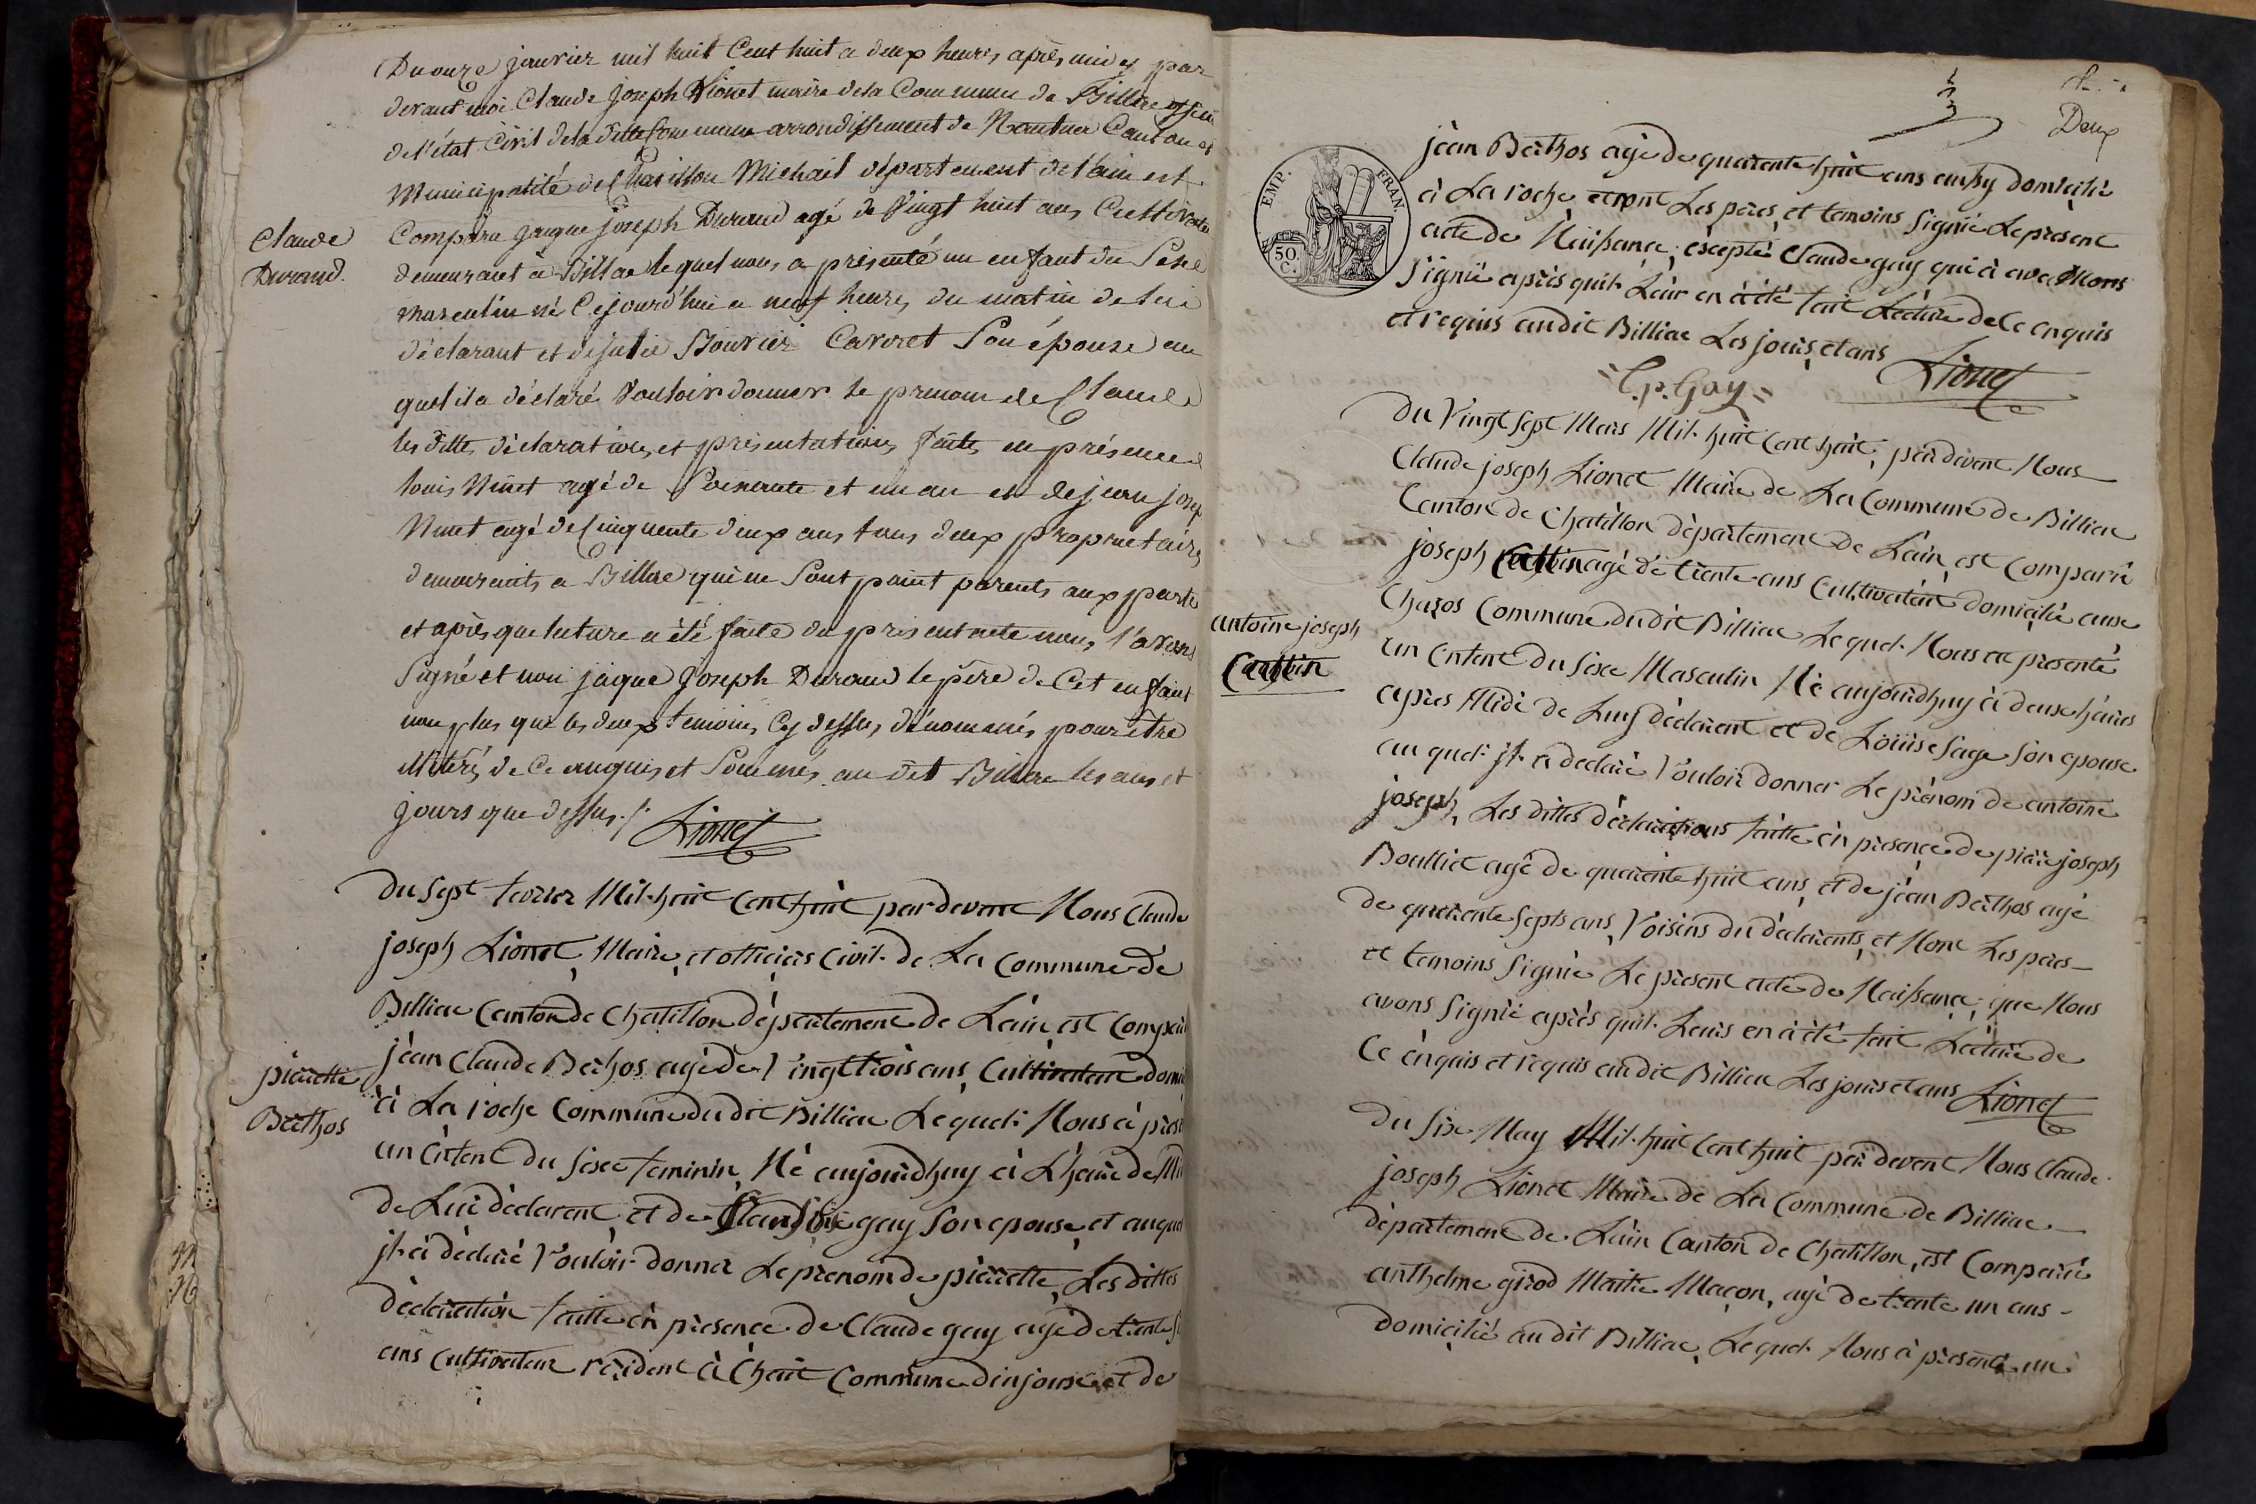 Du onze janvier mil huit Cent huit a deux heures après midy par
devant moi Claude joseph Lionet maire dela Commune de Billiae officier
de l'état Civil dela ditte Commune arrondissement de Nantua Canton et
Municipalité de Chatillon Michail département de l'ain est
Comparu jaique joseph Durand agé de Vingt huit ans Cultivateur
demeurant a Billiae lequel nous a présenté un enfant du Sexe
masculin né Cejourd'hui a neuf heures du matin de lui
déclarant et de julie Bouvier Caveret Son épouse au
quel il a déclaré Vouloir donner le prenom de Claude
les dittes déclarations et présentations faites en présence de
louis Ninet agé de Soixante et un an et de jean josep
Ninet agé de Cinquente deux ans tous deux propriétaires
demeurants a Billiae qui ne Sont point parents aux partis
et après que lecture a été faite du present acte nous l'avons
Signé et non jaique Joseph Durand le père de Cet enfant
non plus que les deux temoins Cy dessus dénommés pour être
illitérés de Ce enquis et Sommés au dit Billiae les ans et
jours que dessus ./. Lionet
Claude
Durand.
Du Sept fevrier Mil huit Cent huit par devant Nous Claude
joseph Lionet, Maire, et officiers Civil de La Commune de
Billiae Canton de Chatillon département de L'ain, est Comparu
jean Claude Berthos agé de Vingt trois ans, Cultivateur domi
à La roche Commune du dit Billiae Lequel Nous à prese
un enfent du Sexe feminin, Né aujourdhuy à L'heure de Mi
de Lui déclarent et de Claudine gay Son epouse, et auquel
jl à déclaré Vouloir donner Le prenom de pierrette, Les dittes
déclaration faitte en presence de Claude gay agé de trente
ans Cultivateur résident à Charit Commune dinjoux et de
pierrette
Berthos
Deux
EMP. FRAN.
50 C.
jean Berthos agé de quarente huit ans aussy domicilié
à La roche et ont Les peres, et temoins Signié Le present
acte de Naissance, éxcepté Claude gay qui à avec Nous
Signié après quil Leur en à été fait Lecture de Ce enquis
et requis audit Billiae Les jours, et ans Lionet
C. p. Gay
Du Vingt Sept Mars Mil huit Cent huit, par devent Nous
Claude joseph Lionet Maire de La Commune de Billiae
Canton de Chatillon département de L'ain, est Comparu
joseph Catthin agé de trente ans Cultivateur domicilié aux
Chazos Commune du dit Billiae Lequel Nous a presenté
un Enfent du Sexe Masculin Né aujourdhuy à deux heures
apres Midi de Luy déclarent et de Loüise Sage Son epouse
au quel jl a declaré Vouloir donner Le prénom de antoine
joseph, Les dittes déclarations faitte en presence de pierre joseph
Boulliet agé de quarente huit ans, et de jean Berthos agé
de quarente Septs ans, Voisins du déclarents, et Nont Les peres
et temoins Signié Le present acte de Naissance, que Nous
avons Signié après quil Leurs en à été fait Lecture de
Ce enquis et requis audit Billiae Les jours et ans Lionet
antoine joseph
Catthin
Du Six May Mil huit Cent huit par devent Nous Claude
joseph Lionet Maire de La Commune de Billiae
département de L'ain Canton de Chatillon, est Comparu
anthelme girod Maitre Maçon, agé de trente un ans
domicilié audit Billiae, Lequel Nous à presenté un